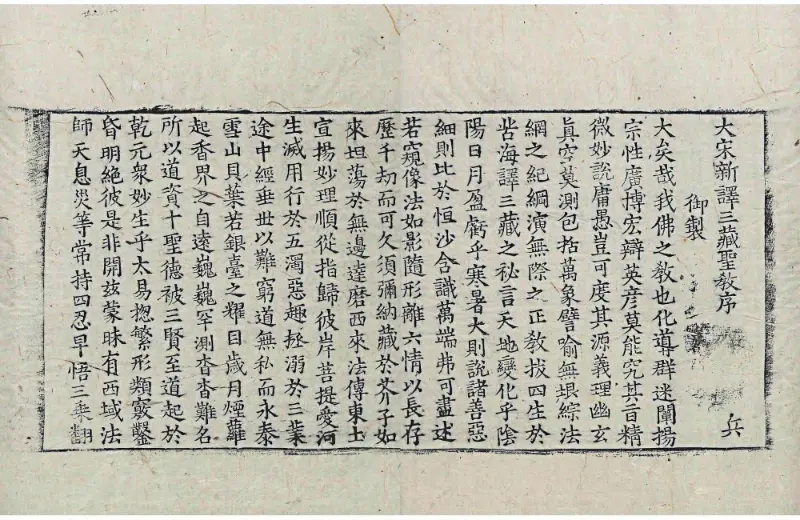 大宋新譯三藏聖教序 兵
御製
大矣哉我佛之教也化導群迷闡揚
宗性廣博宏辯英彦莫能究其旨精
微妙說庸愚豈可度其源義理幽玄
眞空莫測包括萬象譬喻無垠綜法
網之紀綱演無際之正教拔四生於
苦海譯三藏之秘言天地變化乎陰
陽日月盈虧乎寒暑大則說諸善惡
細則比於恒沙含識萬端弗可盡述
若窺像法如影隨形離六情以長存
歷千劫而可久須彌納藏於芥子如
來坦蕩於無邊達磨西來法傳東土
宣揚妙理順從指歸彼岸菩提愛河
生滅用行於五濁惡趣拯溺於三業
途中經垂世以難窮道無私而永泰
雪山貝葉若銀臺之耀目歲月煙蘿
起香界之自遠巍巍罕測杳杳難名
所以道資十聖德被三賢至道起於
乾元衆妙生乎太易揔繁形類竅鑿
昏明絕彼是非開兹蒙昧有西域法
師天息災等常持四忍早悟三乘翻